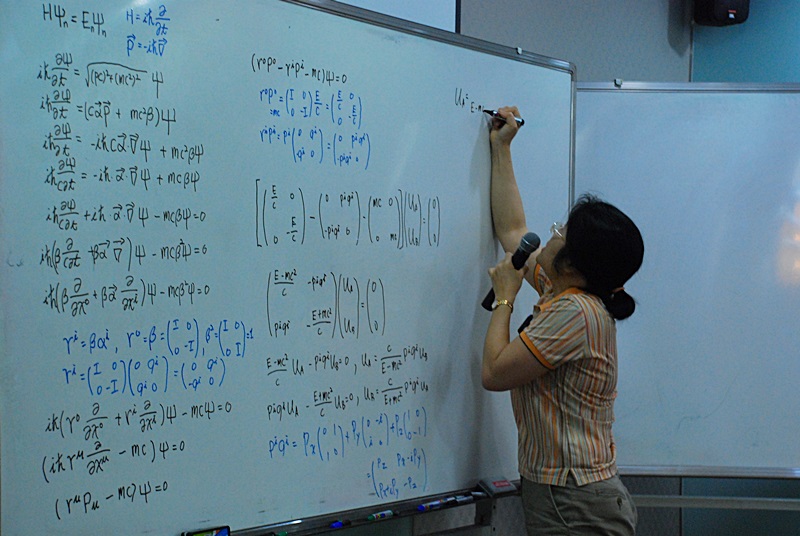 Hψₙ = Eₙψₙ
H = iħ ∂/∂t
p⃗ = -iħ∇⃗
iħ ∂ψ/∂t = √((pc)² + (mc²)²) ψ
iħ ∂ψ/∂t = (cα⃗p⃗ + mc²β)ψ
iħ ∂ψ/∂t = -iħcα⃗·∇⃗ψ + mc²βψ
iħ ∂ψ/c∂t = -iħα⃗·∇⃗ψ + mcβψ
iħ ∂ψ/c∂t + iħ·α⃗·∇⃗ψ - mcβψ = 0
iħ(β ∂/c∂t + βα⃗·∇⃗)ψ - mcβ²ψ = 0
iħ(β ∂/∂x⁰ + βα⃗ ∂/∂xⁱ)ψ - mcβ²ψ = 0
rⁱ = βαⁱ, r⁰ = β = (I 0; 0 -I), β² = (I 0; 0 I) = 1
rⁱ = (I 0; 0 -I)(0 σⁱ; σⁱ 0) = (0 σⁱ; -σⁱ 0)
iħ(r⁰ ∂/∂x⁰ + rⁱ ∂/∂xⁱ)ψ - mcψ = 0
(iħr^μ ∂/∂x^μ - mc)ψ = 0
(r^μ p_μ - mc)ψ = 0
(r⁰p⁰ - rⁱpⁱ - mc)ψ = 0
r⁰p⁰ = (I 0; 0 -I) E/c = (E/c 0; 0 -E/c)
rⁱpⁱ = pⁱ(0 σⁱ; -σⁱ 0) = (0 pⁱσⁱ; -pⁱσⁱ 0)
[(E/c 0; 0 -E/c) - (0 pⁱσⁱ; -pⁱσⁱ 0) - (mc 0; 0 mc)](U_A; U_B) = (0; 0)
((E-mc²)/c -pⁱσⁱ; pⁱσⁱ -(E+mc²)/c)(U_A; U_B) = (0; 0)
(E-mc²)/c U_A - pⁱσⁱU_B = 0, U_A = c/(E-mc²) pⁱσⁱU_B
pⁱσⁱU_A - (E+mc²)/c U_B = 0, U_B = c/(E+mc²) pⁱσⁱU_A
pⁱσⁱ = p_x(0 1; 1 0) + p_y(0 -i; i 0) + p_z(1 0; 0 -1)
= (p_z p_x-ip_y; p_x+ip_y -p_z)
U_A = E-mc